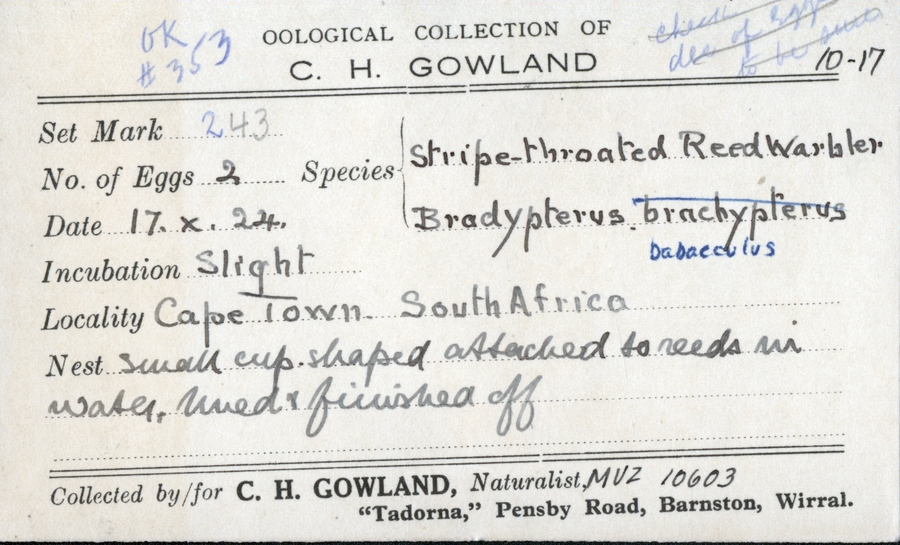 OK
#353
OOLOGICAL COLLECTION OF
C. H. GOWLAND
check
des of egg
to be sure
10-17
Set Mark 243
No. of Eggs 2
Species Stripe-throated Reed Warbler
Bradypterus brachypterus
babaeculus
Date 17. x. 24.
Incubation Slight
Locality Cape Town. South Africa
Nest small cup-shaped attached to reeds in
water, lined & finished off
Collected by/for C. H. GOWLAND, Naturalist, MVZ 10603
"Tadorna," Pensby Road, Barnston, Wirral.